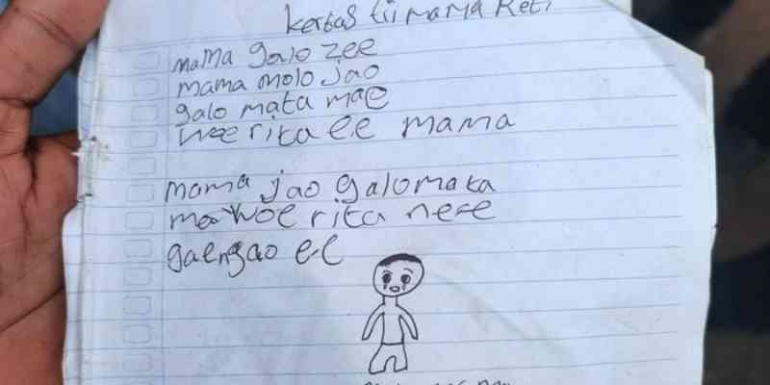 kertas tii mama Reti
mama galo zee
mama molo Jao
galo mata mae
woe rita ee mama
mama jao galo mata
mae woe rita nee
gaengao ee